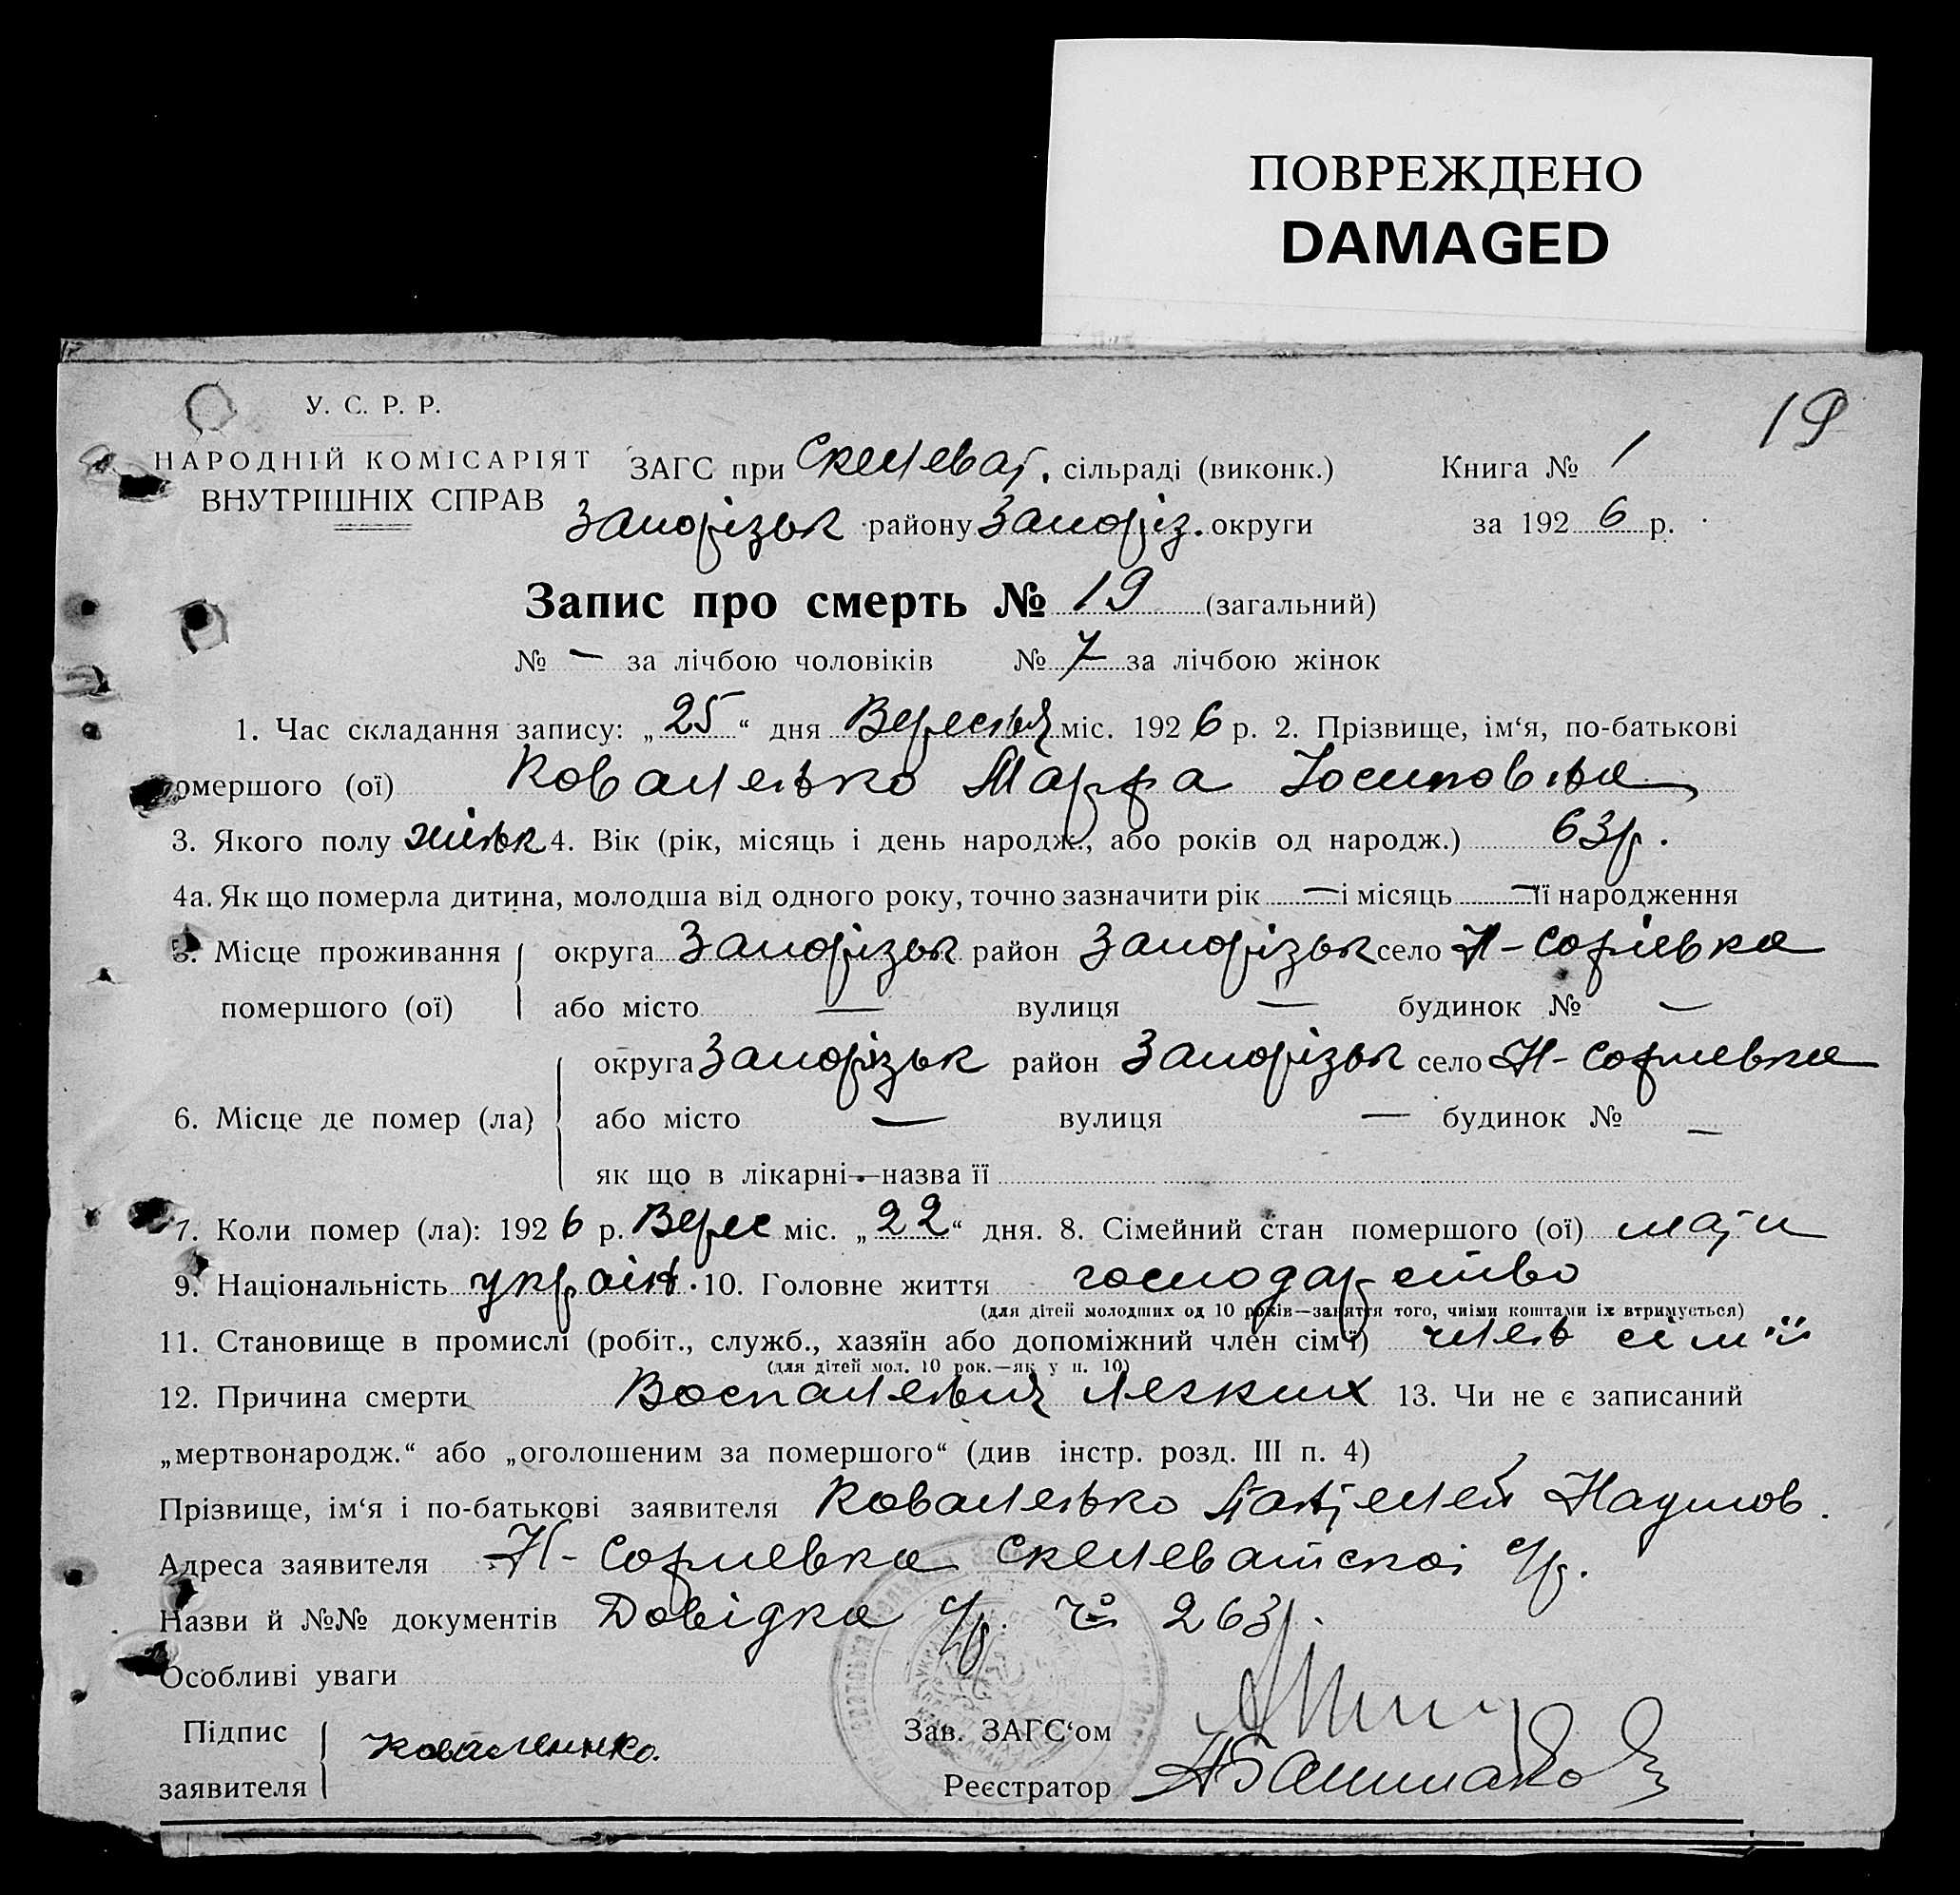 ПОВРЕЖДЕНО
DAMAGED
19
У. С. Р. Р.
НАРОДНІЙ КОМІСАРІЯТ
ВНУТРІШНІХ СПРАВ
ЗАГС при Скелеват. сільраді (виконк.) Книга № 1
Запорізьк району Запоріз. округи за 1926 р.
Запис про смерть № 19 (загальний)
№ — за лічбою чоловіків № 7 за лічбою жінок
1. Час складання запису: „25“ дня Вересня міс. 1926 р. 2. Прізвище, ім‘я, по-батькові
помершого (ої) Коваленко Марфа Іосиповна
3. Якого полу жіньк 4. Вік (рік, місяць і день народж., або років од народж.) 63 р.
4а. Як що померла дитина, молодша від одного року, точно зазначити рік — і місяць — її народження
5. Місце проживання округа Запорізьк район Запорізьк село Н-Софіевка
помершого (ої) або місто — вулиця — будинок № —
округа Запорізьк район Запорізьк село Н-Софиевка
6. Місце де помер (ла) або місто — вулиця — будинок № —
як що в лікарні—назва її
7. Коли помер (ла): 1926 р. Верес міс. „22“ дня. 8. Сімейний стан помершого (ої) мати
9. Національність україн. 10. Головне життя господарство
(для дітей молодших од 10 років—заняття того, чиїми коштами їх втримується)
11. Становище в промислі (робіт., служб., хазяїн або допоміжний член сім‘ї) член сімʼїі
(для дітей мол. 10 рок.—як у п. 10)
12. Причина смерти Воспаления легких 13. Чи не є записаний
„мертвонародж.“ або „оголошеним за помершого“ (див інстр. розд. III п. 4)
Прізвище, ім‘я і по-батькові заявителя Коваленко Пантелей Наумов.
Адреса заявителя Н-Софиевка Скелеватскоі с/р.
Назви й №№ документів Довідка с/р. № 263
Особливі уваги
Підпис
заявителя Коваленко.
Зав. ЗАГС‘ом
Реєстратор